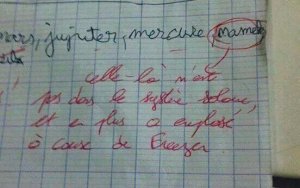 mars, jujuter, mercure, namek
celle-là n'est
pas dans le système solaire,
et en plus a explosé
à cause de Freezer